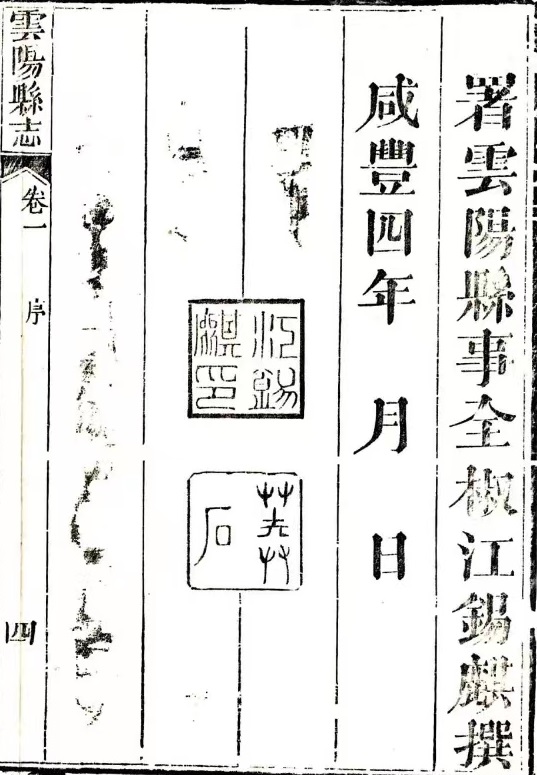 署雲陽縣事全椒江錫麒撰
咸豐四年 月 日
江錫麒印
莽石
雲陽縣志
卷一
序
四